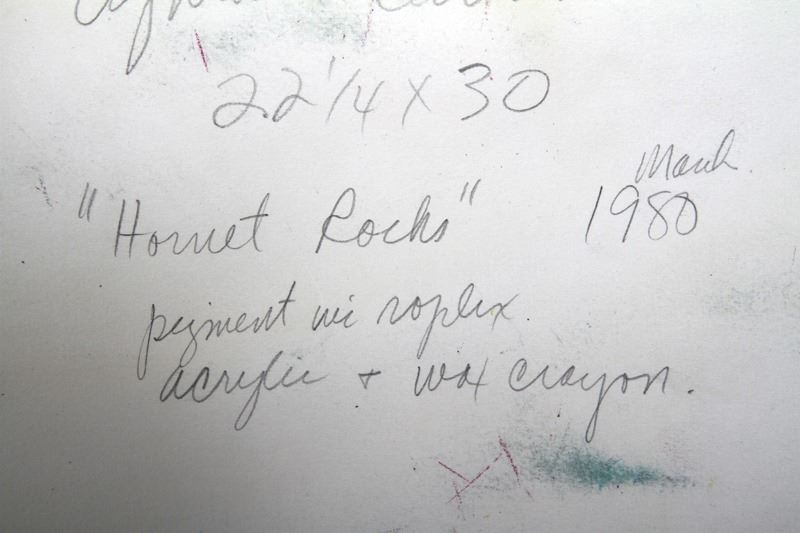 22 1/4 X 30
"Hornet Rocks"
March
1980
pigment in roplex
acrylic + wax crayon.